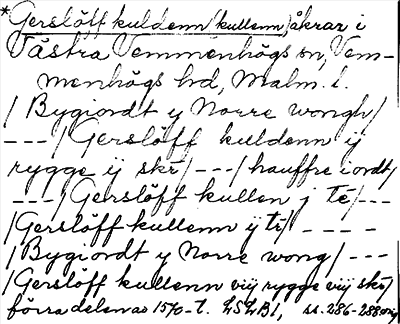 *Gerslöff kuldenn (kullenn), åkrar i
Västra Vemmenhögs sn, Vem-
menhögs hd, Malm. l.
/ Bygiordt y Norre wongh/
---/ Gerslöff kuldenn ij
rygge ij skr/---/ hauffre iordt/
---/ Gerslöff kullen j te/---
/Gerslöff kullenn ij ti/ ----
/Bygiordt y Norre wong/ ---
/Gerslöff kullenn viij rygge viij skr/
förra delen av 1570-t. LSLB1, ss. 286-288